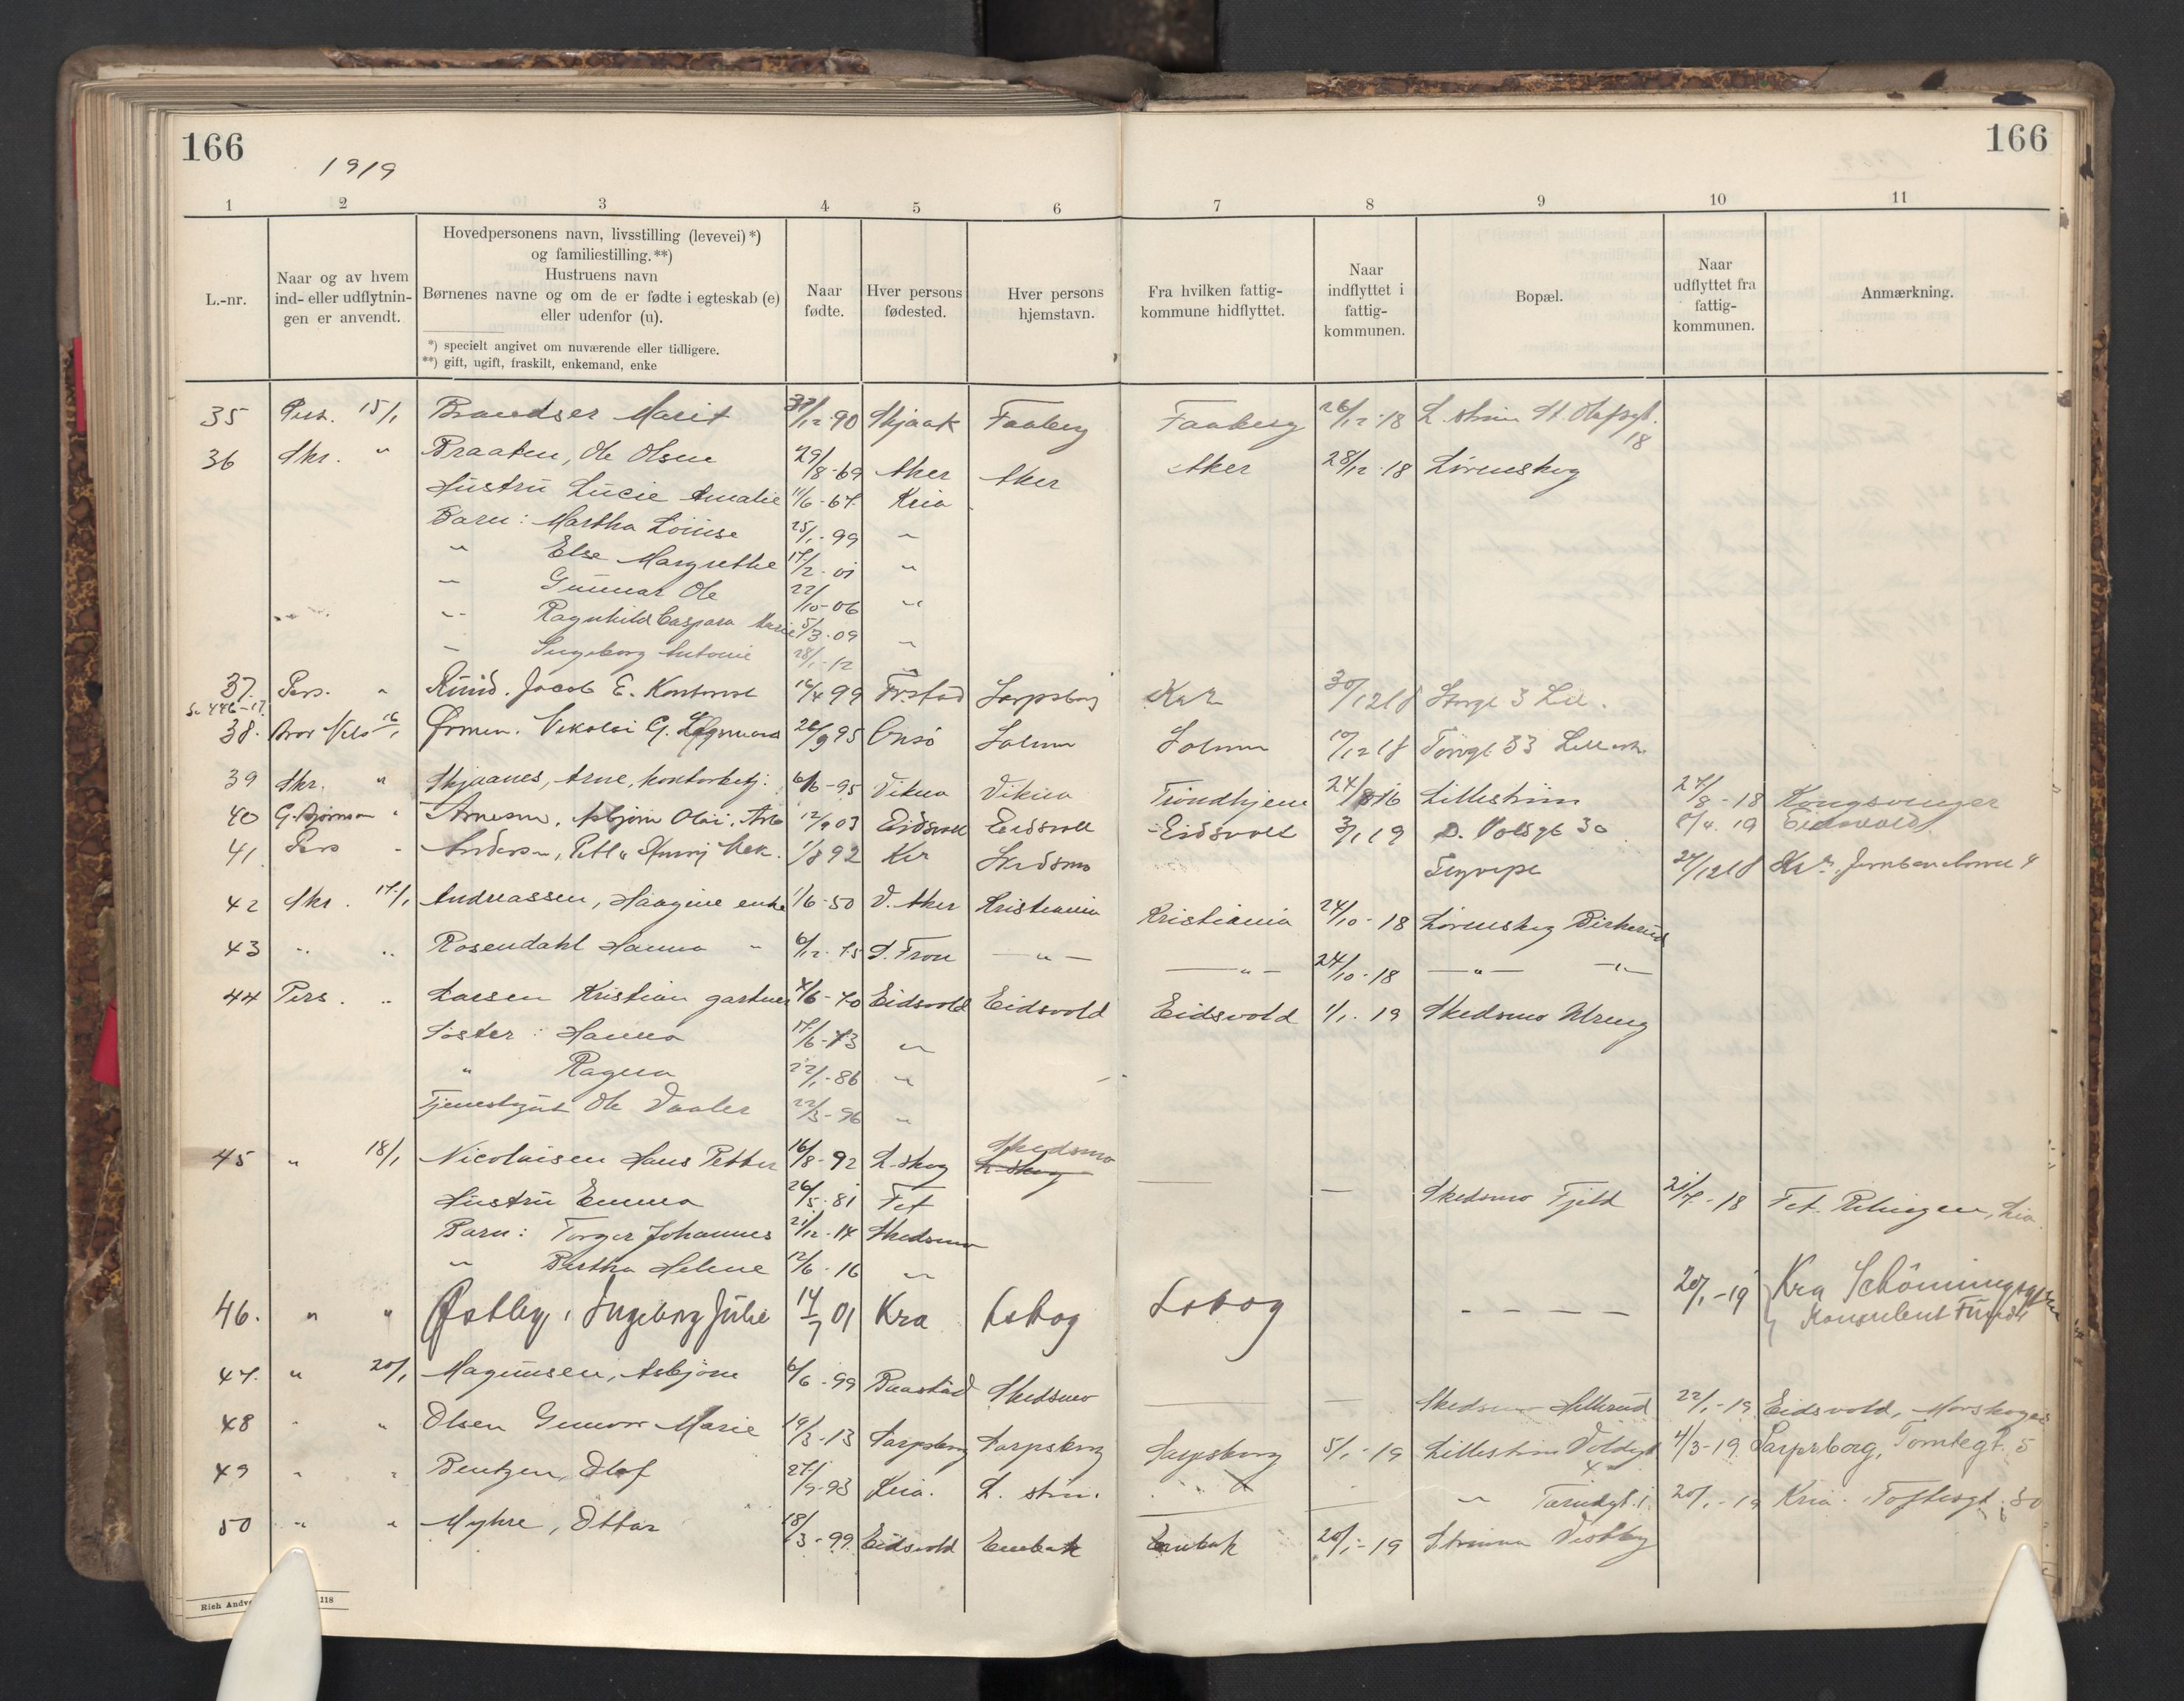 166
166
1919
1 2 3 4 5 6 7 8 9 10 11
L.-nr.
Naar og av hvem
ind- eller udflytnin-
gen er anvendt.
Hovedpersonens navn, livsstilling (levevei)*)
og familiestilling.**)
Hustruens navn
Børnenes navne og om de er fødte i egteskab (e)
eller udenfor (u).
*) specielt angivet om nuværende eller tidligere.
**) gift, ugift, fraskilt, enkemand, enke
Naar
fødte.
Hver persons
fødested.
Hver persons
hjemstavn.
Fra hvilken fattig-
kommune hidflyttet.
Naar
indflyttet i
fattig-
kommunen.
Bopæl.
Naar
udflyttet fra
fattig-
kommunen.
Anmærkning.
35 Pers. 15/1 Brandser Marit /12-90 Skjaak Faaberg Faaberg 26/12-18 L. strøm St. Olafsgt. 18
36 Skr. " Braaten, Ole Olsen 29/8-69 Aker Aker Aker 28/12-18 Lørenskog
Hustru Lucie Amalie 11/6-67 Kria
Barn: Martha Louise 25/1-99 "
" Else Margrethe 17/2-01 "
" Gunnar Ole 22/10-06 "
" Ragnhild Caspara Marie 5/3-09 "
" Ingeborg Antonie 28/1-12 "
37. Pers. " Ruud. Jacob E. Kontorist 16/4 99 Fr.stad Sarpsborg Kra 30/12 18 Storgt 3 Lill.
Se 446-17.
38. Bror Nils 16/1 Ørmen. Nikolai G. 26/9 95 Onsø Solum Solum 10/12 18 Torvgt 33 Lillestr.
39 Skr. " Skjaanes, Arne, kontorbetj. 6/6-95 Vikna Vikna Trondhjem 24/8 16 Lillestrøm 27/8-18 Kongsvinger
40 G. Bjørnson " Arnesen, Asbjørn Olai, Arb 12/9 03 Eidsvoll Eidsvoll Eidsvoll 3/1 19 D. Volsgt 30 /4. 19 Eidsvold.
41. Pers " Andersen, Petter Henry Mek. 1/8 92 Kr Skedsmo 27/12 18
42 Skr. 17/1 Andreassen, Haagine enke 1/6-50 V. Aker Kristiania Kristiania 24/10-18 Lørenskog Birkerud
43 " " Rosendahl Hanna " 6/12-75 S. Fron —"— —"— 24/10-18 —"— —"—
44 Pers. " Larsen Kristian gartner 4/6-70 Eidsvold Eidsvold Eidsvold 1/1-19 Skedsmo Vreng
Søster: Hanna 17/6-73 "
" Ragna 22/1-86 "
Tjenestegut Ole Vaaler 22/3-96 "
45 " 18/1 Nicolaisen Hans Petter 16/8-92 L.skog Skedsmo L. skog — — Skedsmo Fjeld 21/7-18 Fet. Rælingen, Lia.
Hustru Emma 26/5-81 Fet
Barn: Torger Johannes 21/12-14 Skedsmo
" Bertha Helene 12/6-16 "
46. " " Østby, Ingeborg Julie 14/7 01 Kra Lskog Lskog - - - - 20/1-19 Kra Schönningsgt
Konsulent
47. " 20/1 Magnusen, Asbjørn 6/6-99 Baastad Skedsmo — — Skedsmo Hellerud 22/1-19 Eidsvold, Morskogen
48 " " Olsen Gunvor Marie 19/3-13 Sarpsborg Sarpsborg Sarpsborg 5/1-19 Lillestrøm Voldgt 4 4/3-19 Sarpsborg, Tomtegt. 5
49 " " Bentzen, Olof 27/9-93 Kria. L. strøm. — " 20/1-19 Kria. Toftesgt. 30
50 " " Myhre, Ottar 18/3-99 Eidsvold Enebak Enebak 20/1-19 Strømmen Vestby
Rich Andv
118